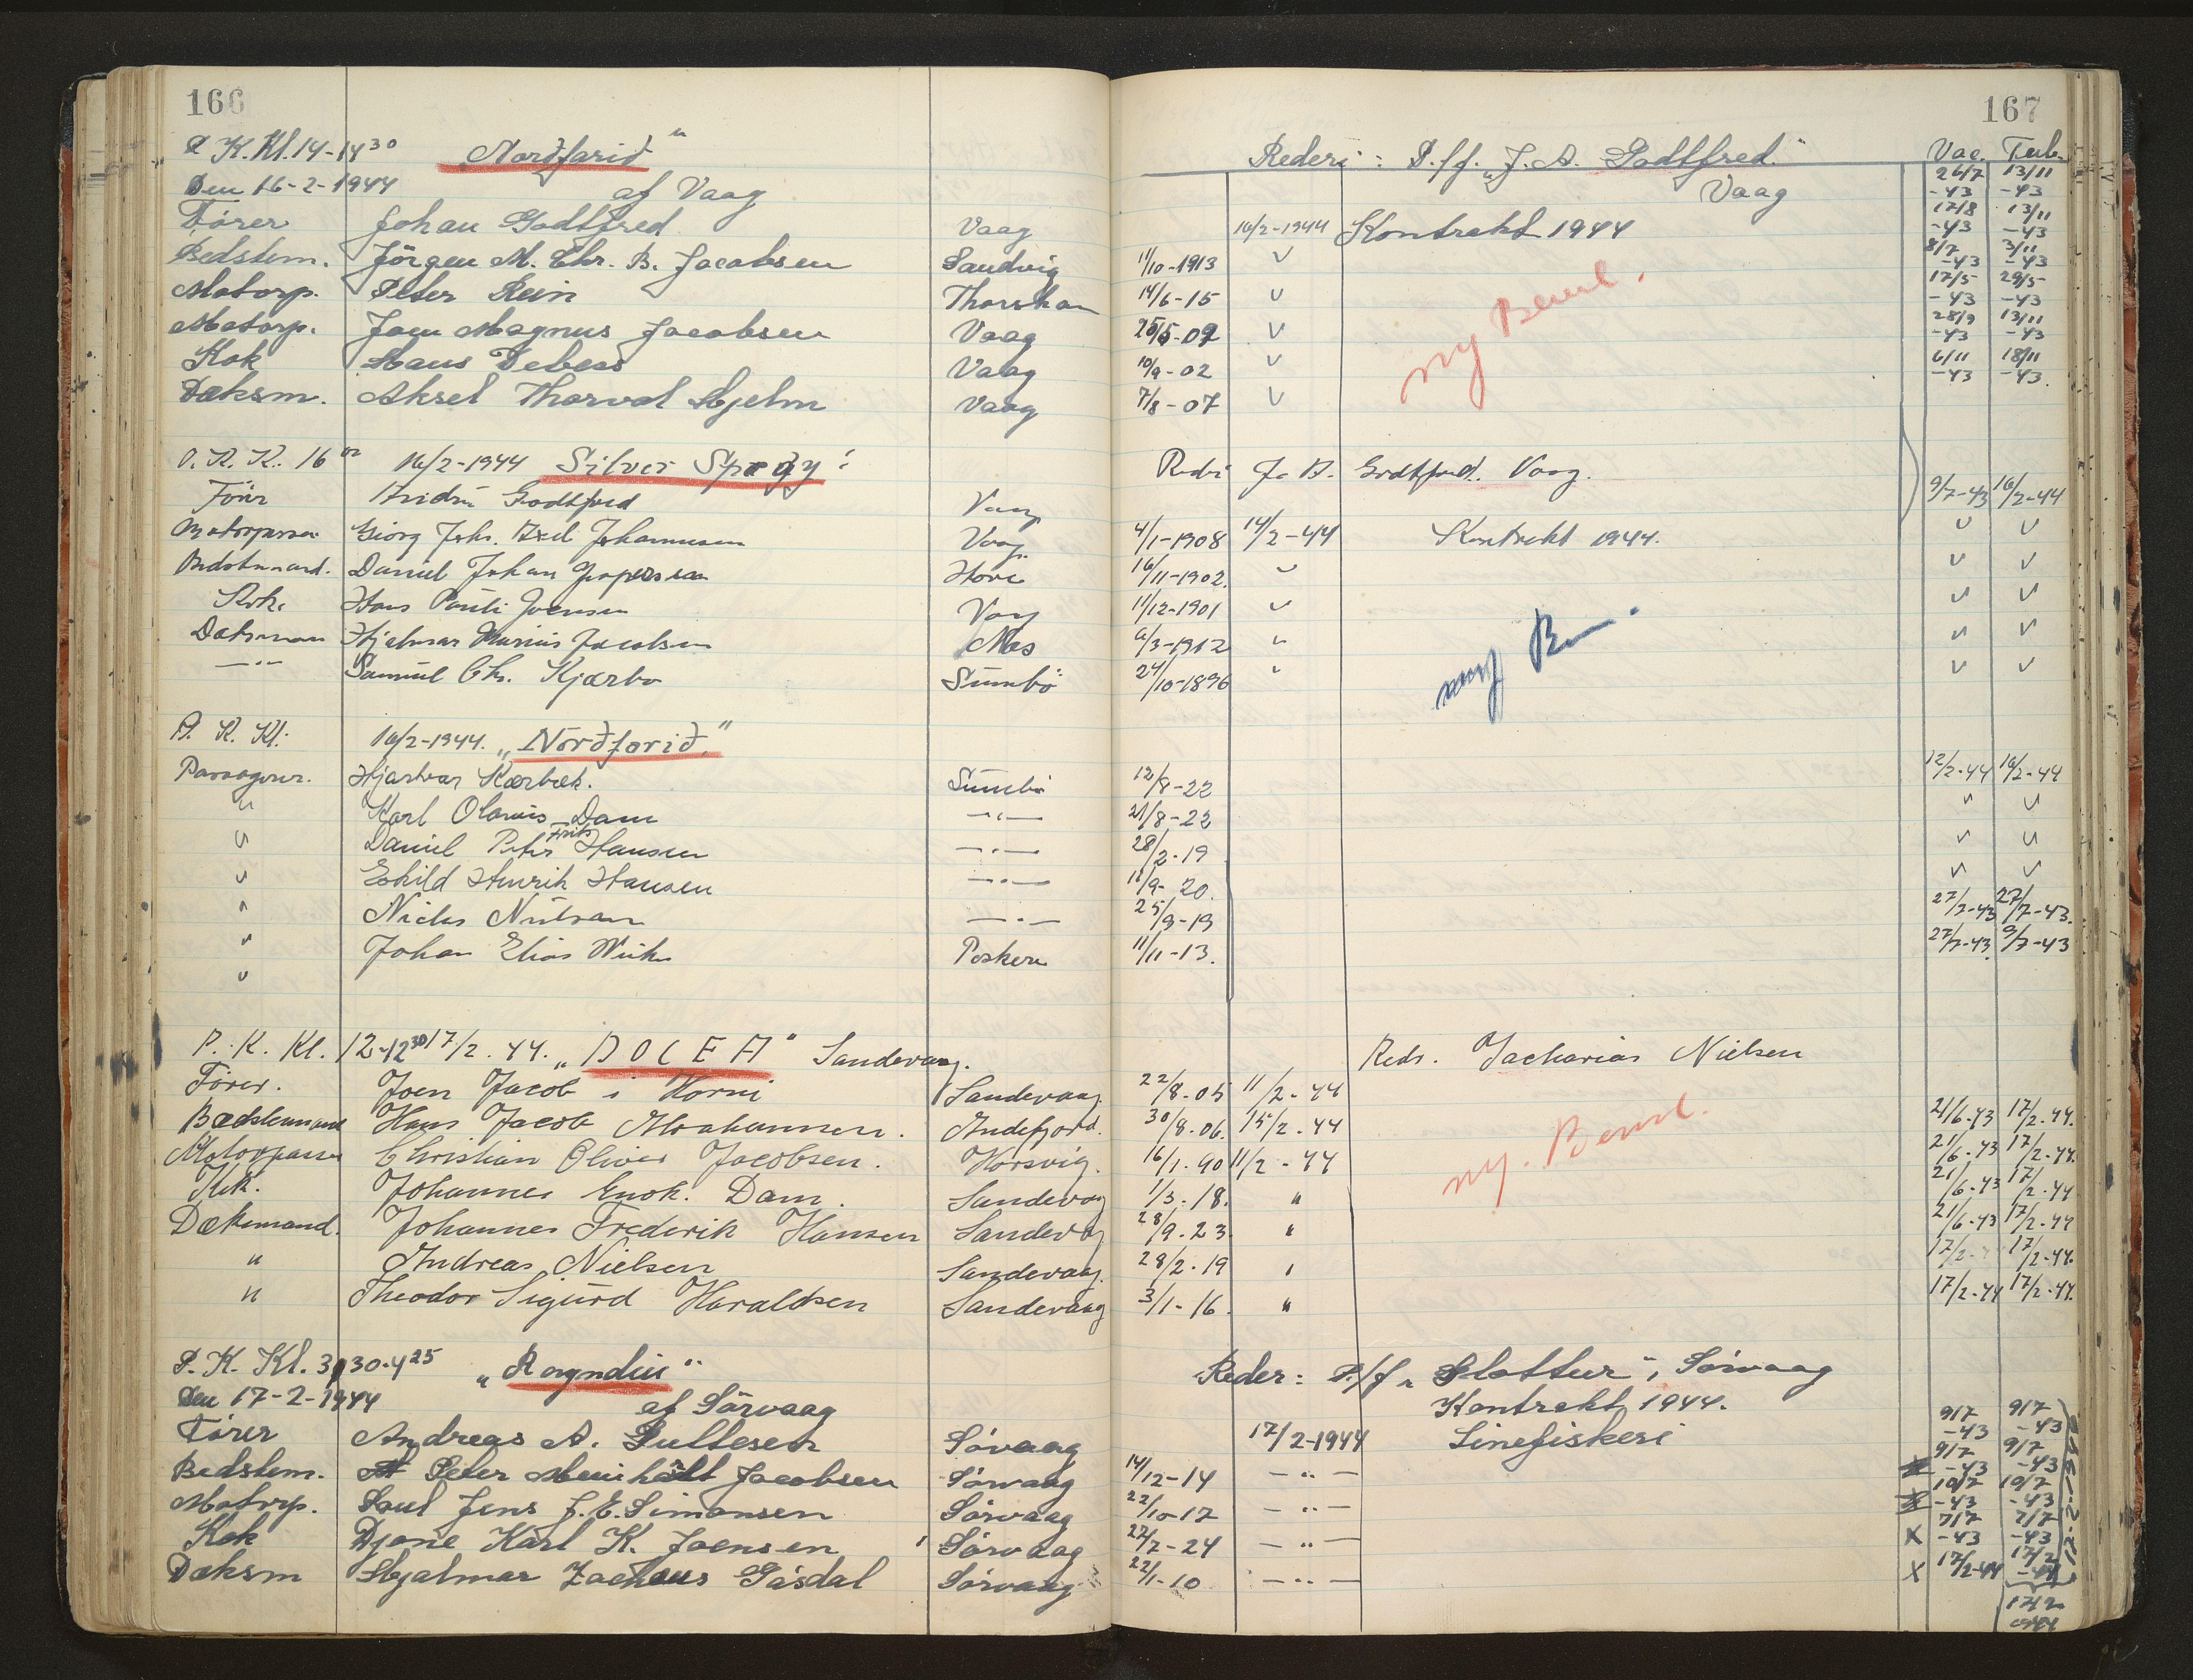 166
P. K. Kl. 14-14³⁰ „Nordfarid“
Den 16-2-1944 af Vaag
Fører Johan Godtfred Vaag
Bedstem. Jörgen M. Chr. B. Jacobsen Sandvig
Motorp. Peter Rein Thorshavn
Motorp. Joen Magnus Jacobsen Vaag
Kok Hans Debess Vaag
Dæksm. Aksel Thorval Hjelm Vaag
P. K. K. 16 16/2-1944 Silver Spray
Förer Godtfred Vaag
Motorpasser Georg Johs. Axel Johannesen Vaag
Bedstemand. Daniel Johan Jespersen Hove
Kok. Hans Pauli Joensen Vaag
Dæksman Hjalmar Marius Jacobsen Nes
—"— Samuel Chr. Kjærbo Sumbö
P. K. Kl. 16/2-1944. „Nordfarid.“
Passagerer. Hjartvar Kærbæk. Sumbö
" Karl Olavus Dam —"—
" Daniel Peter Frits Hansen —"—
" Eskild Henrik Hansen —"—
" Niclas Nielsen —"—
" Johan Elias Porkere
"
P. K. Kl. 12-12³⁰ 17/2. 44. „DOCEA“ Sandevaag.
Fører. Joen Jacob i Horni Sandevaag.
Bedstemand Hans Jacob Abrahamsen. Andefjord.
Motorpasser Christian Oliver Jacobsen. Horsvig.
Kok. Johannes Enok. Dam. Sandevaag
Dæksmand. Johannes Frederik Hansen Sandevaag
" Andreas Nielsen Sandevaag.
" Theodor Sigurd Haraldsen Sandevaag
P. K. Kl. 3,30-4²⁵ „Rogndin“
Den 17-2-1944 af Sörvaag
Fører Andreas A. Sörvaag
Bedstem. Peter Meinhalt Jacobsen Sörvaag
Motorp. Poul Jens J. E. Simonsen Sörvaag
Kok Djone Karl K. Joensen Sörvaag
Dæksm Hjalmar Zacheus Gásdal Sörvaag
167
Rederi: P./f. „J. A. Godtfred“ Vac. Tub.
Vaag
26/7 -43 13/11 -43
16/2-1944 Kontrakt 1944
17/8 -43 13/11 -43
11/10-1913 v
8/7 -43 3/11 -43
14/6-15 v ny Bevil.
17/5 -43 29/5 -43
25/5-02 v
28/9 -43 13/11 -43
10/9-02 v
6/11 -43 18/11 -43.
7/8-07 v
Rederi J. A. Godtfred. Vaag.
9/7-43 16/2-44
4/1-1908 14/2-44 Kontrakt 1944. v v
16/11-1902. " v v
11/12-1901 " v v
6/3-1912 " ny v v
24/10-1896 " v v
12/8-22 12/2-44 16/2-44
21/8-22 v v
28/2-19 v v
16/9-20. v v
25/9-19 27/7-43 27/7-43.
11/11-13. 27/7-43. 9/7-43
Reds. Zacharias Nielsen
22/8-05 11/2-44
30/8-06. 15/2-44 21/6-43 17/2-44.
16/1-90 11/2-44 ny. Bevil. 21/6-43 17/2-44.
1/3-18. " 21/6-43 17/2-44
28/9-23. " 21/6-43 17/2-44
28/2-19 " 17/2 17/2-44.
3/1-16. " 17/2-44 17/2-44.
Reder: P./f „Slættur“, Sörvaag
Kontrakt 1944.
17/2-1944 Linefiskeri 9/7 -43 9/7 -43
14/12-14 —"— 9/7 -43 9/7 -43
22/10-17 —"— 10/7 -43 10/7 -43
27/7-24 —"— x 7/7 -43 7/7 -43
22/1-10 —"— x 17/2-44 17/2 -44
17/2